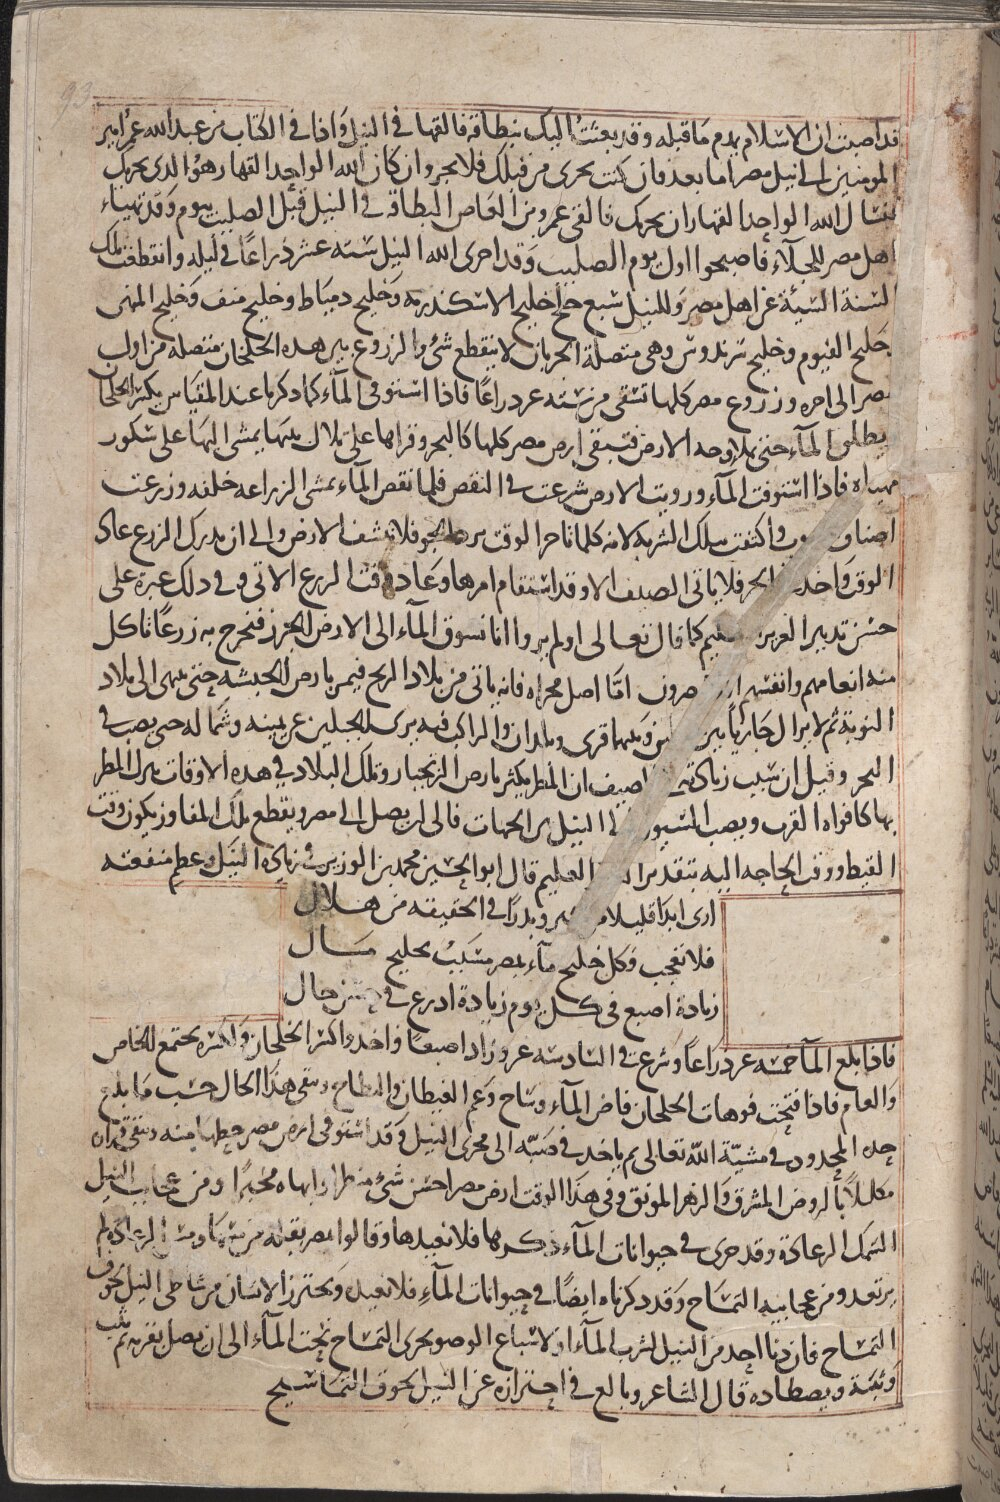 93
قد اصبت ان الاسلام يهدم ما قبله وقد بعثت اليك ببطاقة فالقها في النيل واذا في الكتاب من عبد الله عمر امير
المومنين الى نيل مصر اما بعد فان كنت تجرى من قبلك فلا تجر وان كان الله الواحد القهار هو الذى يجريك
فنسال الله الواحد القهار ان يجريك فالقى عمرو بن العاص البطاقة في النيل قبل الصليب بيوم وقد تهياء
اهل مصر للجلآء فاصبحوا اول يوم الصليب وقد اجرى الله النيل ستة عشر ذراعًا في ليله وانقطعت تلك
السنة السيئة عن اهل مصر وللنيل سبع خلج خليج الاسكندريه وخليج دمياط وخليج منف وخليج المنهى
وخليج الفيوم وخليج سردوس وهى متصلة الجريان لا ينقطع شئ والزروع بين هذه الخلجان متصله من اول
مصر الى اخره وزروع مصر كلها تسقى من سته عشر ذراعًا فاذا استوفى المآء كما ذكرنا عند المقياس بكسر الخلجان
يطلق المآء حتى يملا وجه الارض فتبقى ارض مصر كلها كالبحر وقراها على تلال بينها يمشى اليها على سكور
مهياه فاذا استوفت المآء ورويت الارض شرعت في النقص فلما نقص المآء يمشى الزراعه خلفه وزرعت
اصناف واكتفت بتلك الشربه لانه كلما تاخر الوقت برد الجو فلا تنشف الارض والى ان يدرك الزرع عاد
الوقت واخذ الحر فلا ياتى الصيف الا وقد استقام امرها وعاد وقت الزرع الاتى وفي ذلك عبرة على
حسن تدبير العزيز العليم كما قال تعالى اولم يروا انا نسوق المآء الى الارض الجرز فنخرج به زرعًا تاكل
منه انعامهم وانفسهم افلا يبصرون امّا اصل مجراه فانه ياتى من بلاد الزنج فيمر بارض الحبشه حتى ينتهى الى بلاد
النوبة ثم لا يزال جاريًا بين جبلين وبينهما قرى وبلدان والراكب فيه يرى الجبلين عن يمينه وشماله حتى يصب في
البحر وقيل ان سبب زيادته في الصيف ان المطر يكثر بارض الزنجبار وتلك البلاد في هذه الاوقات ينزل المطر
بها كافواه القرب ويصب السيول الى النيل من الجهات فالى ان يصل الى مصر ويقطع تلك المفاوز يكون وقت
القيظ ووقت الحاجه اليه بتقدير العزيز العليم قال ابو الحسين محمد بن الوزير في زيادة النيل وعظم منفعته
ارى ابدًا قليلا من كثير وبدرًا في الحقيقه من هلال
فلا تعجب فكل خليج مآء بمصر مسبب بخليج مال
زيادة اصبع فى كل يوم زيادة اذرع في حسن حال
فاذا بلغ المآ خمسه عشر ذراعًا وشرع في السادسه عشر وزاد اصبعا واحدا كسر الخلجان ولكسره يجتمع الخاص
والعام فاذا فتحت فوهات الخلجان فاض المآء وساح وعم الغيطان والبطاح وبقى هذا الحال حسب ما بلغ
حده المحدود في مشيّة اللّه تعالى ثم ياخذ في صبّه الى مجرى النيل وقد استوفى ارض مصر حظها منه وبقى
مكللاً بالروض المشرق والزهر المونق وفي هذا الوقت ارض مصر احسن شئ منظرا وابهاه مخبرًا ومن عجايب النيل
السمك الرعادة وقد جرى في حيوانات المآء ذكرها فلا نعيدها وقالوا بمصر بقله من مسها ومس الرعادة لم
يرتعد ومن عجايبه التمساح وقد ذكرناه ايضًا في حيوانات المآء فلا نعيده ويحترز الانسان من شاطى النيل خوف
التمساح فان دنا احد من النيل لشرب المآء او لاسباغ الوضو يجرى التمساح تحت المآء الى ان يصل بقربه ثم يثب
وثبة ويصطاده قال الشاعر وبالغ في احترازه عن النيل لخوف التماسيح